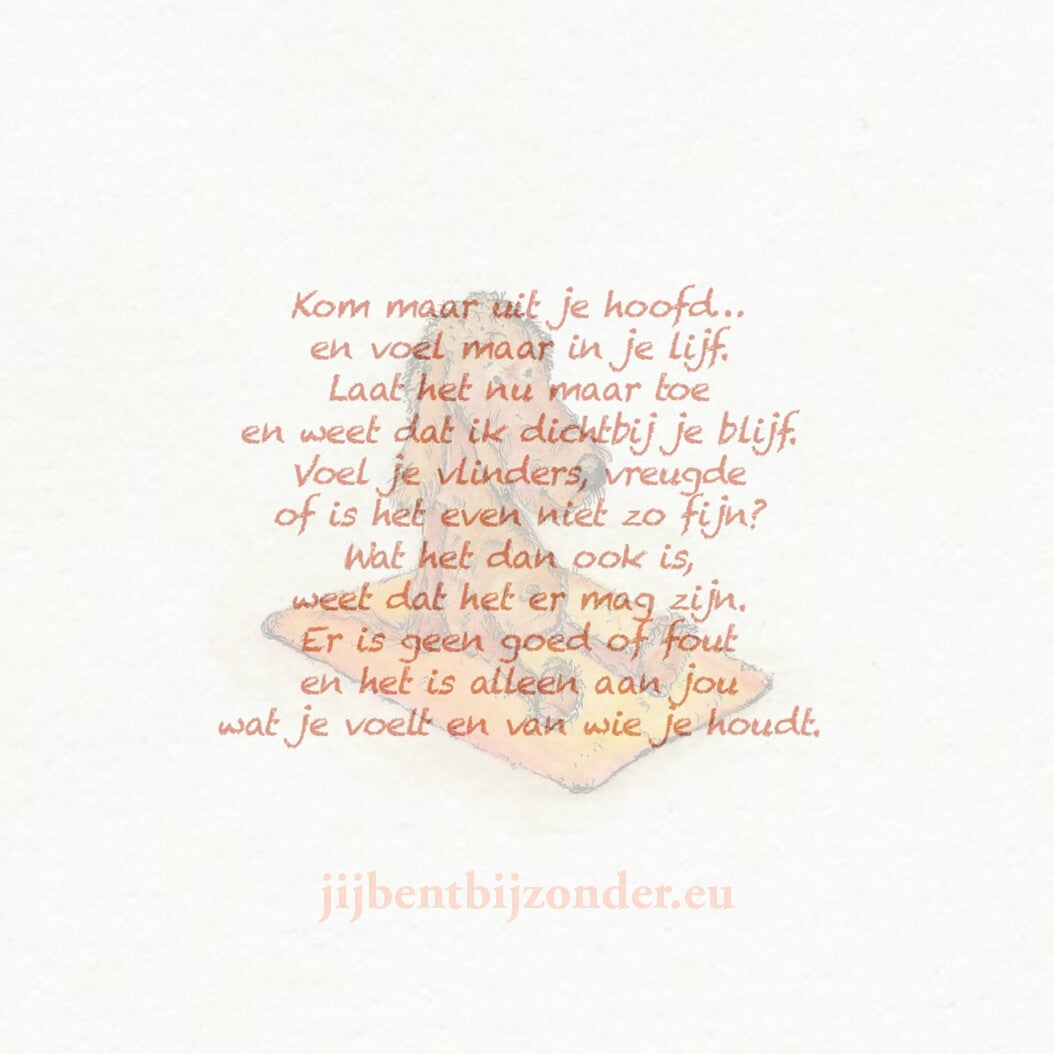 Kom maar uit je hoofd...
en voel maar in je lijf.
Laat het nu maar toe
en weet dat ik dichtbij je blijf.
Voel je vlinders, vreugde
of is het even niet zo fijn?
Wat het dan ook is,
weet dat het er mag zijn.
Er is geen goed of fout
en het is alleen aan jou
wat je voelt en van wie je houdt.
jijbentbijzonder.eu